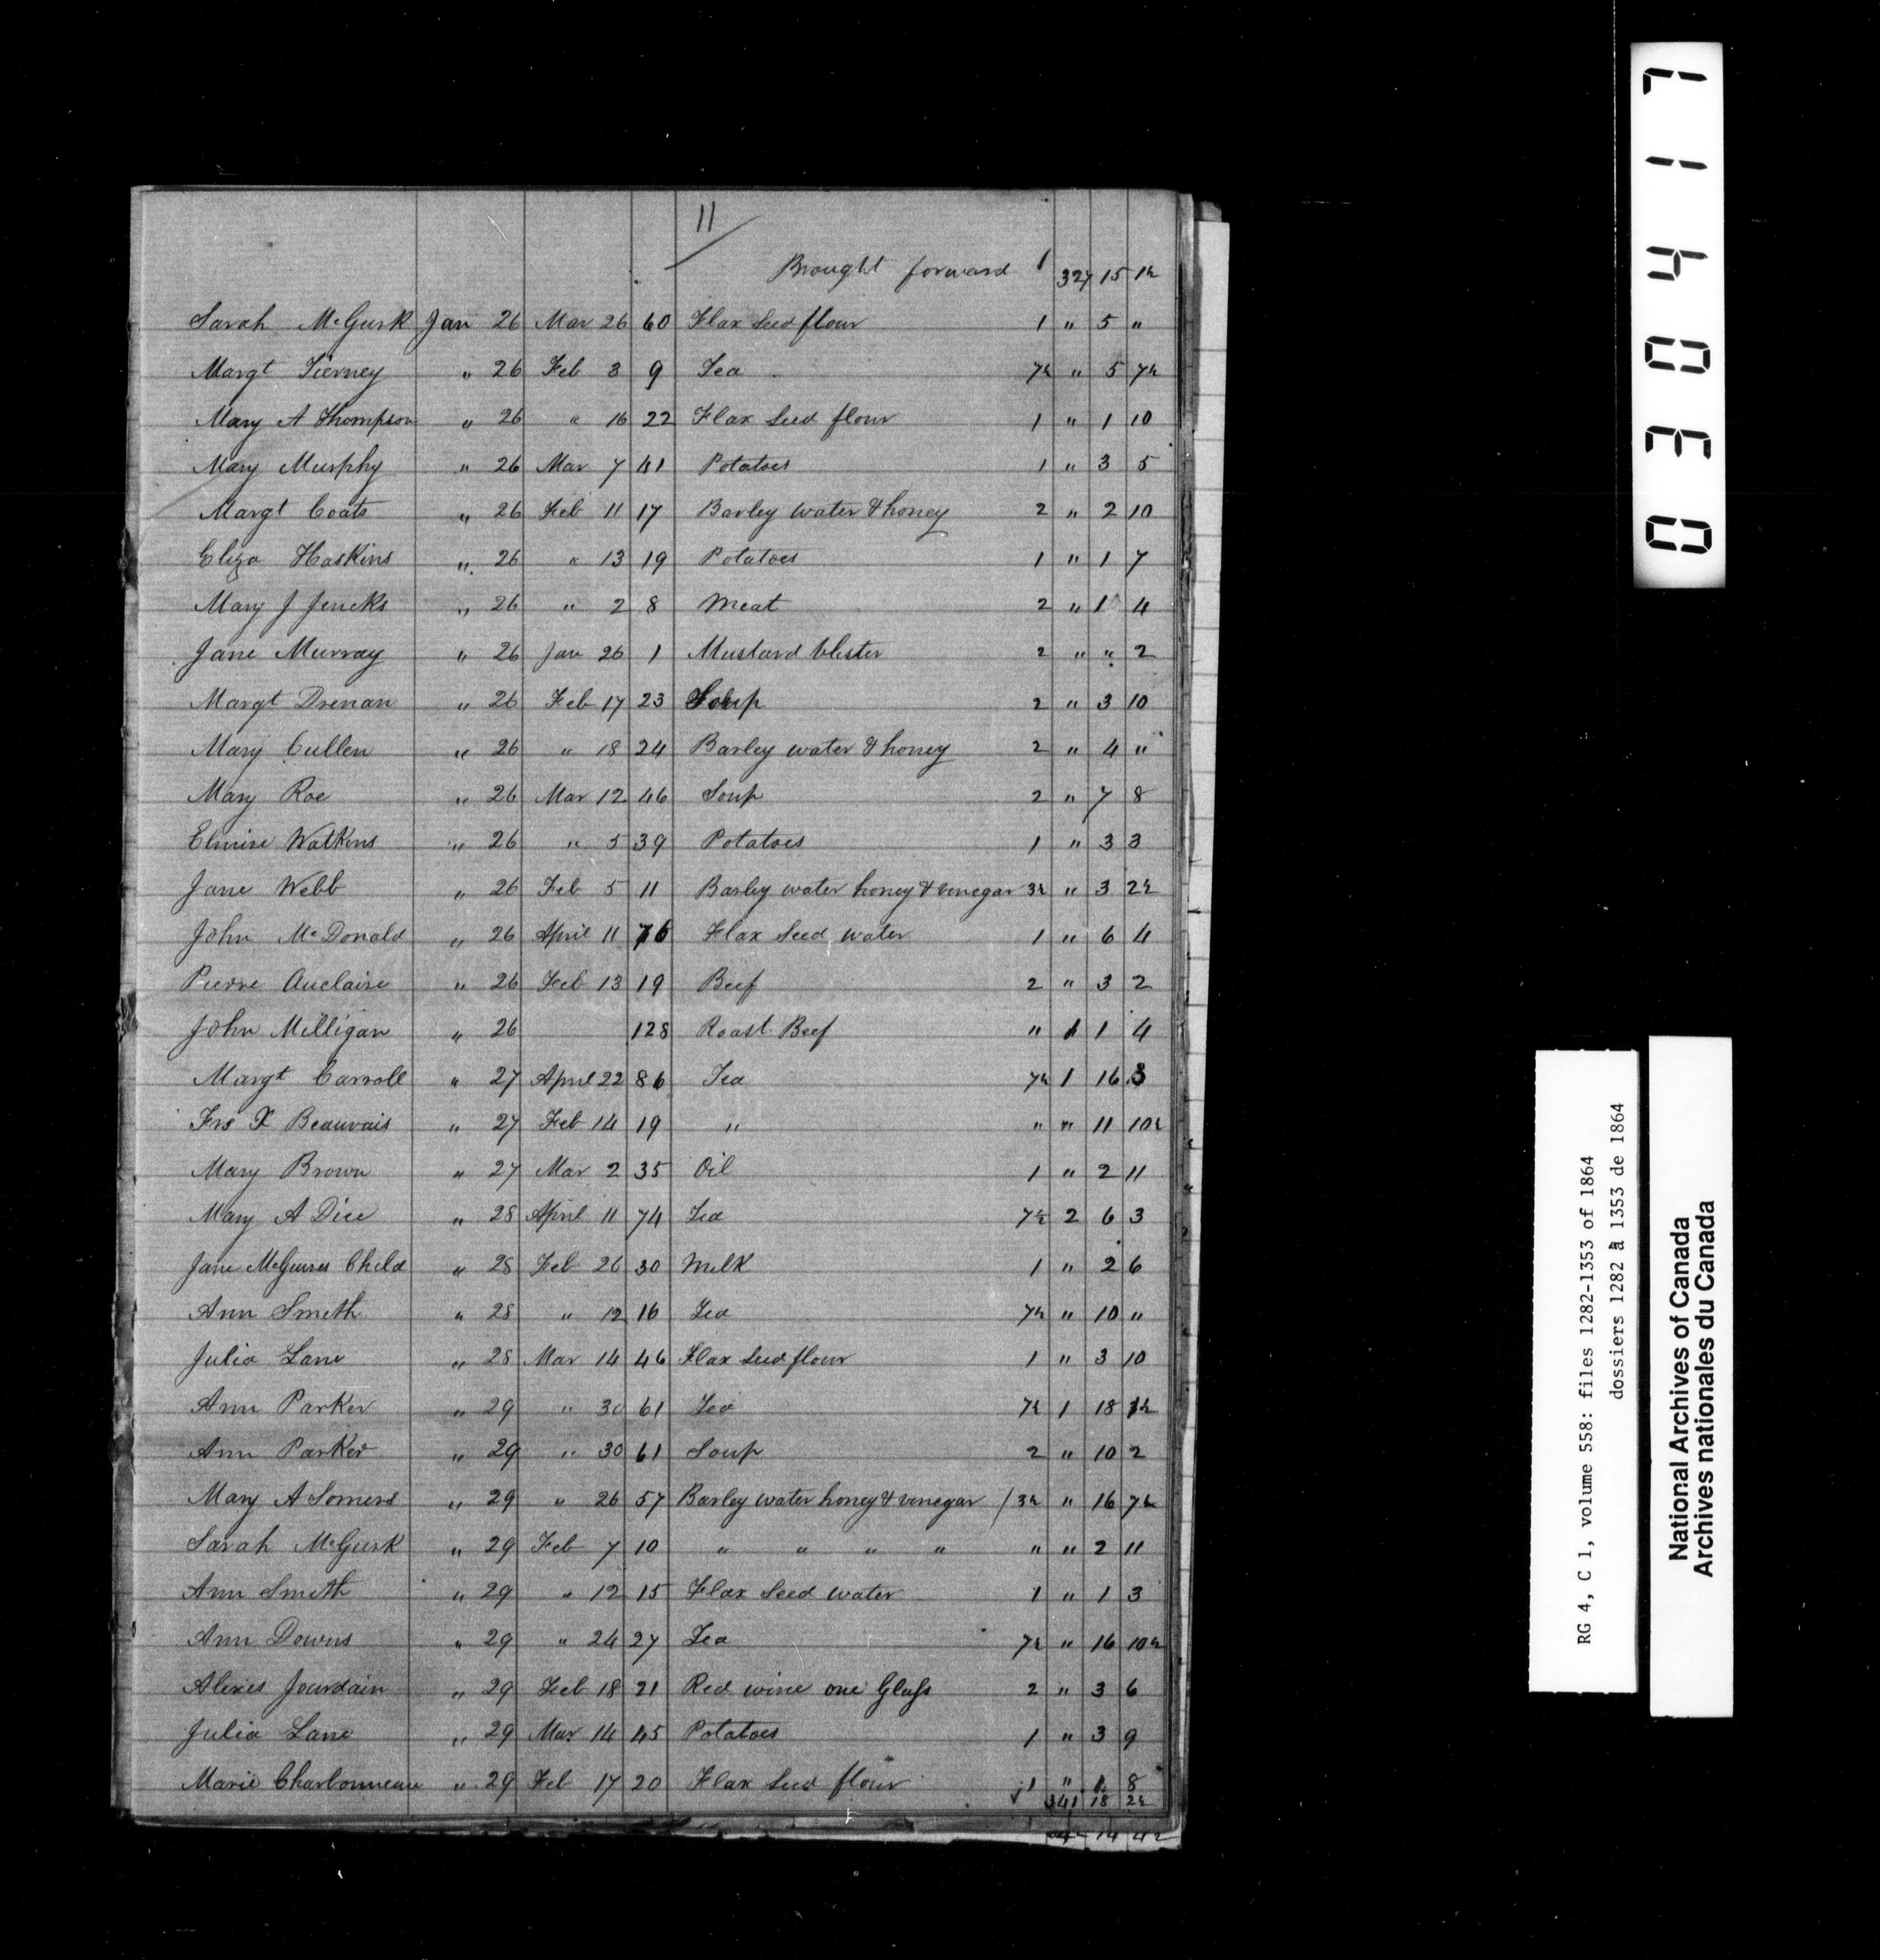 11
Brought forward 1 327 15 1½
Sarah McGurk Jan 26 Mar 26 60 Flax Seed flour 1 " 5 "
Margt Tierney " 26 Feb 3 9 Tea 7½ " 5 7½
Mary A Thompson " 26 " 16 22 Flax Seed flour 1 " 1 10
Mary Murphy " 26 Mar 7 41 Potatoes 1 " 3 5
Margt Coats " 26 Feb 11 17 Barley water & honey 2 " 2 10
Eliza Haskins " 26 " 13 19 Potatoes 1 " 1 7
Mary J Jencks " 26 " 2 8 Meat 2 " 1 4
Jane Murray " 26 Jan 26 1 Mustard blister 2 " " 2
Margt Drenan " 26 Feb 17 23 Soup 2 " 3 10
Mary Cullen " 26 " 18 24 Barley water & honey 2 " 4 "
Mary Roe " 26 Mar 12 46 Soup 2 " 7 8
Elmire Watkins " 26 " 5 39 Potatoes 1 " 3 3
Jane Webb " 26 Feb 5 11 Barley water honey & vinegar 3½ " 3 2½
John McDonald " 26 April 11 76 Flax Seed water 1 " 6 4
Pierre Auclaire " 26 Feb 13 19 Beef 2 " 3 2
John Milligan " 26 128 Roast Beef " 1 1 4
Margt Carroll " 27 April 22 86 Tea 7½ 1 16 3
Frs X Beauvais " 27 Feb 14 19 " " " 11 10½
Mary Brown " 27 Mar 2 35 Oil 1 " 2 11
Mary A Dice " 28 April 11 74 Tea 7½ 2 6 3
Jane McGuires Child " 28 Feb 26 30 Milk 1 " 2 6
Ann Smith " 28 " 12 16 Tea 7½ " 10 "
Julia Lane " 28 Mar 14 46 Flax Seed flour 1 " 3 10
Ann Parker " 29 " 30 61 Tea 7½ 1 18 1½
Ann Parker " 29 " 30 61 Soup 2 " 10 2
Mary A Somers " 29 " 26 57 Barley water honey & vinegar / 3½ " 16 7½
Sarah McGurk " 29 Feb 7 10 " " " " " " 2 11
Ann Smith " 29 " 12 15 Flax Seed water 1 " 1 3
Ann Downs " 29 " 24 27 Tea 7½ " 16 10½
Alexis Jourdain " 29 Feb 18 21 Red wine one Glass 2 " 3 6
Julia Lane " 29 Mar 14 45 Potatoes 1 " 3 9
Marie Charbonneau " 29 Feb 17 20 Flax Seed flour 1 " 1 8
341 18 2½
14
030417
RG 4, C 1, volume 558: files 1282-1353 of 1864
dossiers 1282 à 1353 de 1864
National Archives of Canada
Archives nationales du Canada